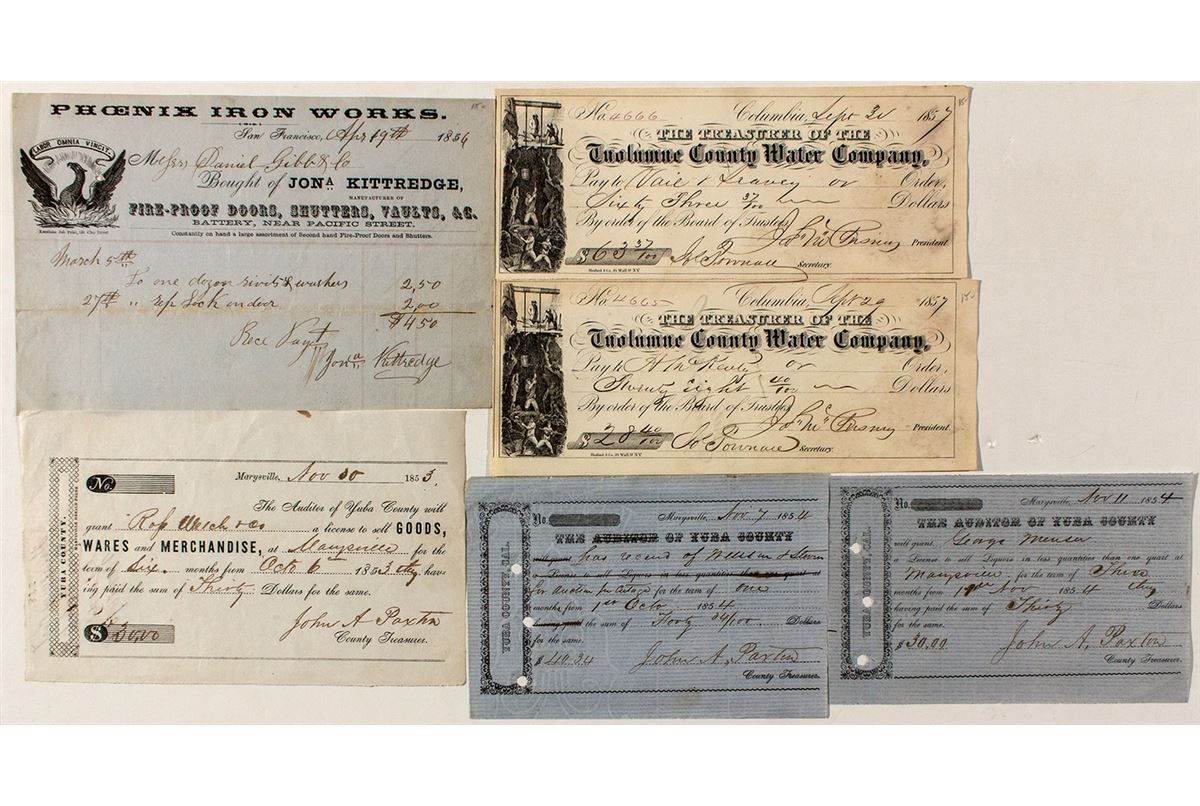 PHŒNIX IRON WORKS.
San Francisco, Apr 19th 1856
LABOR OMNIA VINCIT.
Messrs Daniel Gibb & Co
Bought of JONA. KITTREDGE,
MANUFACTURER OF
FIRE-PROOF DOORS, SHUTTERS, VAULTS, &C.
BATTERY, NEAR PACIFIC STREET.
Constantly on hand a large assortment of Second hand Fire-Proof Doors and Shutters.
March 5th
To one dozen rivits & washers 2,50
27th " rep lock on door 2,00
$4.50
Rece Payt
Jona Kittredge
No. 4666 Columbia, Sept 30 1857
THE TREASURER OF THE
Tuolumne County Water Company,
Pay to Vail & or Order,
Sixty Three 37/100 Dollars
By order of the Board of Trustees
President.
$63 37/100 Jo Pownall Secretary.
No. 4665 Columbia, Sept 29 1857
THE TREASURER OF THE
Tuolumne County Water Company,
Pay to or Order,
Twenty Eight 40/100 Dollars
By order of the Board of Trustees
President.
$28 40/100 Jo Pownall Secretary.
YUBA COUNTY.
No. Marysville, Nov 30 1853.
The Auditor of Yuba County will
grant a license to sell GOODS,
WARES and MERCHANDISE, at Marysville for the
term of six months from Octo 6th 1853, they hav-
ing paid the sum of Thirty Dollars for the same.
$30.00 John A Paxton
County Treasurer.
YUBA COUNTY, CAL.
No. Marysville, Nov 7 1854
THE AUDITOR OF YUBA COUNTY
will grant has received of
a License to sell Liquors in less quantities than one quart at
for Auction for the term of one
months from 1st Octo 1854
having paid the sum of Forty 34/100 Dollars
for the same.
$40.34 John A. Paxton
County Treasurer.
YUBA COUNTY, CAL.
No. Marysville, Nov 11 1854
THE AUDITOR OF YUBA COUNTY
will grant George
a License to sell Liquors in less quantities than one quart at
Marysville, for the term of Three
months from Nov 1854
having paid the sum of Thirty Dollars
for the same.
$30.00 John A. Paxton
County Treasurer.